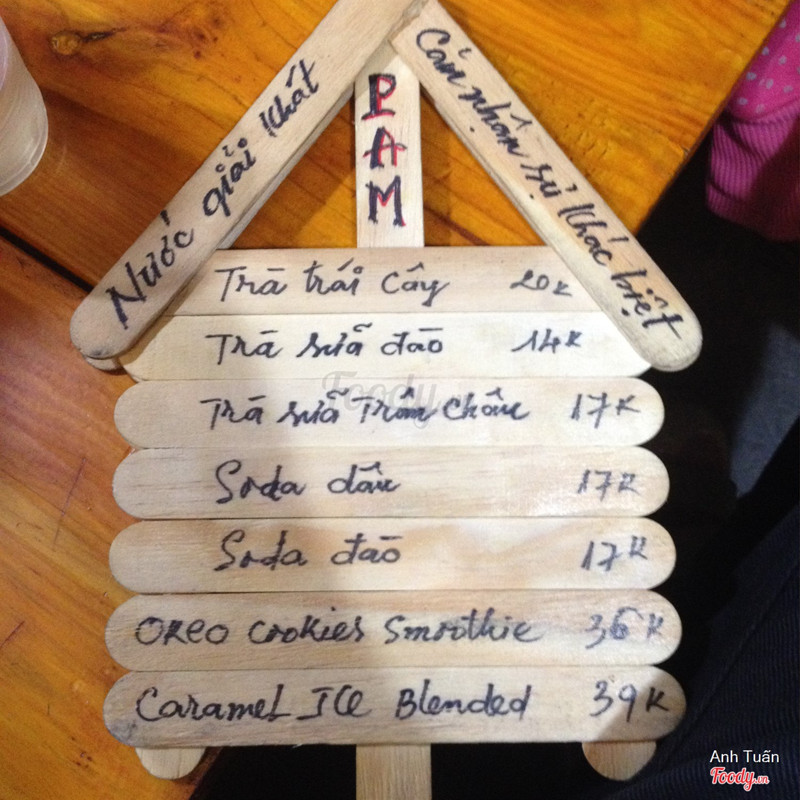 Nước giải khát
PAM
Cảm nhận sự khác biệt
Trà trái cây 20K
Trà sữa đào 14K
Trà sữa Trân Châu 17K
Soda dâu 17K
Soda đào 17K
OReo Cookies Smoothie 36K
CarameL ICe Blended 39K
Foody
Anh Tuấn
Foody.vn